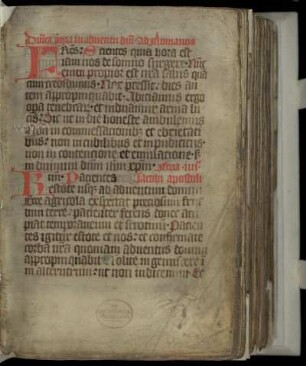 Fres: Scientes quia hora est
iam nos de somno surgere. Nunc
enim propior est nra salus qua
cum credidimus. Nox precessit: dies au
tem appropinquabit. Abiciamus ergo
opa tenebrar: et induamur arma lu
cis. Sic ut in die honeste ambulemus
Non in comessationibus et ebrietati
bus: non in cubilibus et impudicitiis:
non in contentione et emulatione: s
induimini dnm ihm xpm.
Kmi: Pacientes Jacobi apostoli
estote usq ad adventum domini
Ecce agricola expectat preciosum fruc
tum terre: pacienter ferens donec acci
piat temporaneum et serotinum. Pacien
tes igitur estote et vos: et confirmate
corda vra quoniam adventus domini
appropinquabit. Nolite ingemiscere
in alterutrum: ut non iudicemini. Ec